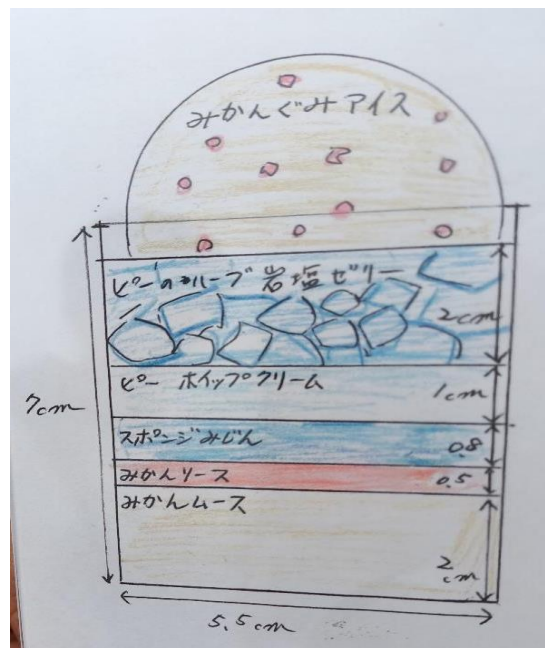 みかんぐみアイス
岩塩ゼリー
2cm
7cm
ピー ホイップクリーム
1cm
スポンジみじん
0.8
みかんソース
0.5
みかんムース
2
cm
5.5cm